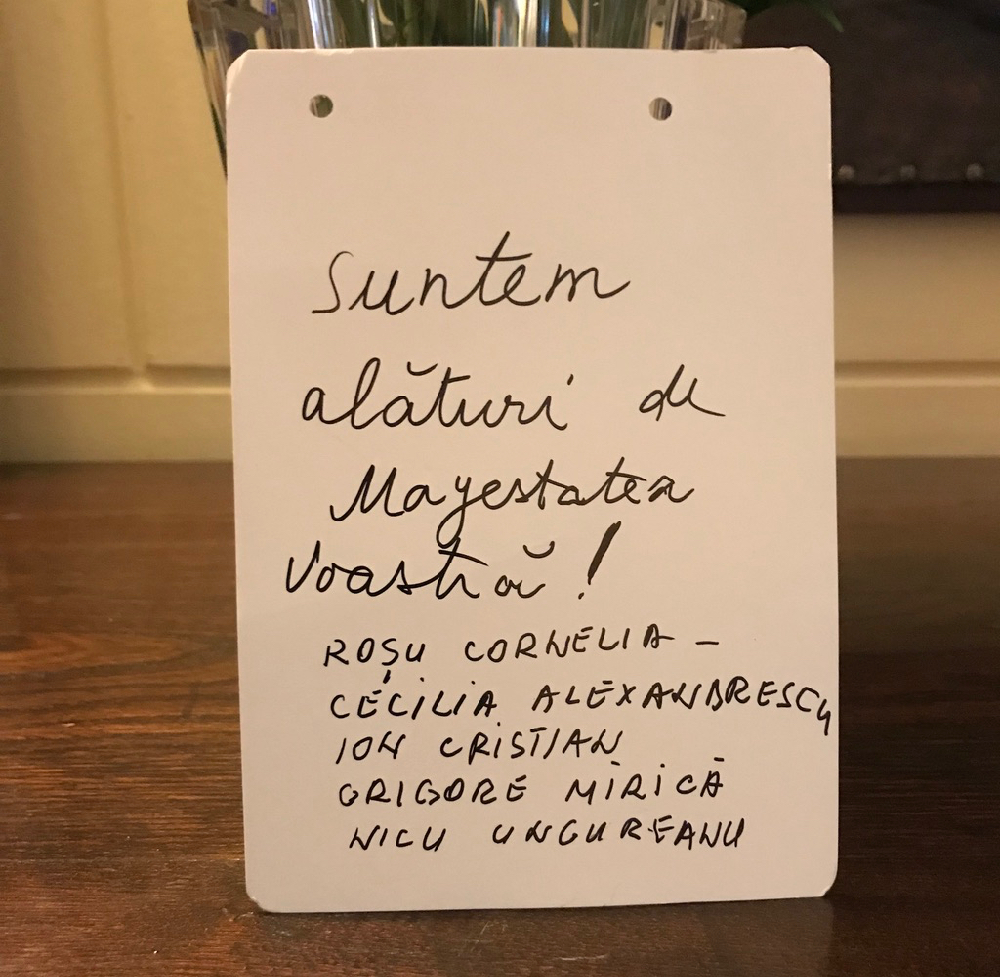 Suntem
alături de
Mayestatea
Voastră!
ROȘU CORNELIA –
CECILIA ALEXANDRESCU
ION CRISTIAN
GRIGORE MIRICĂ
NICU UNGUREANU